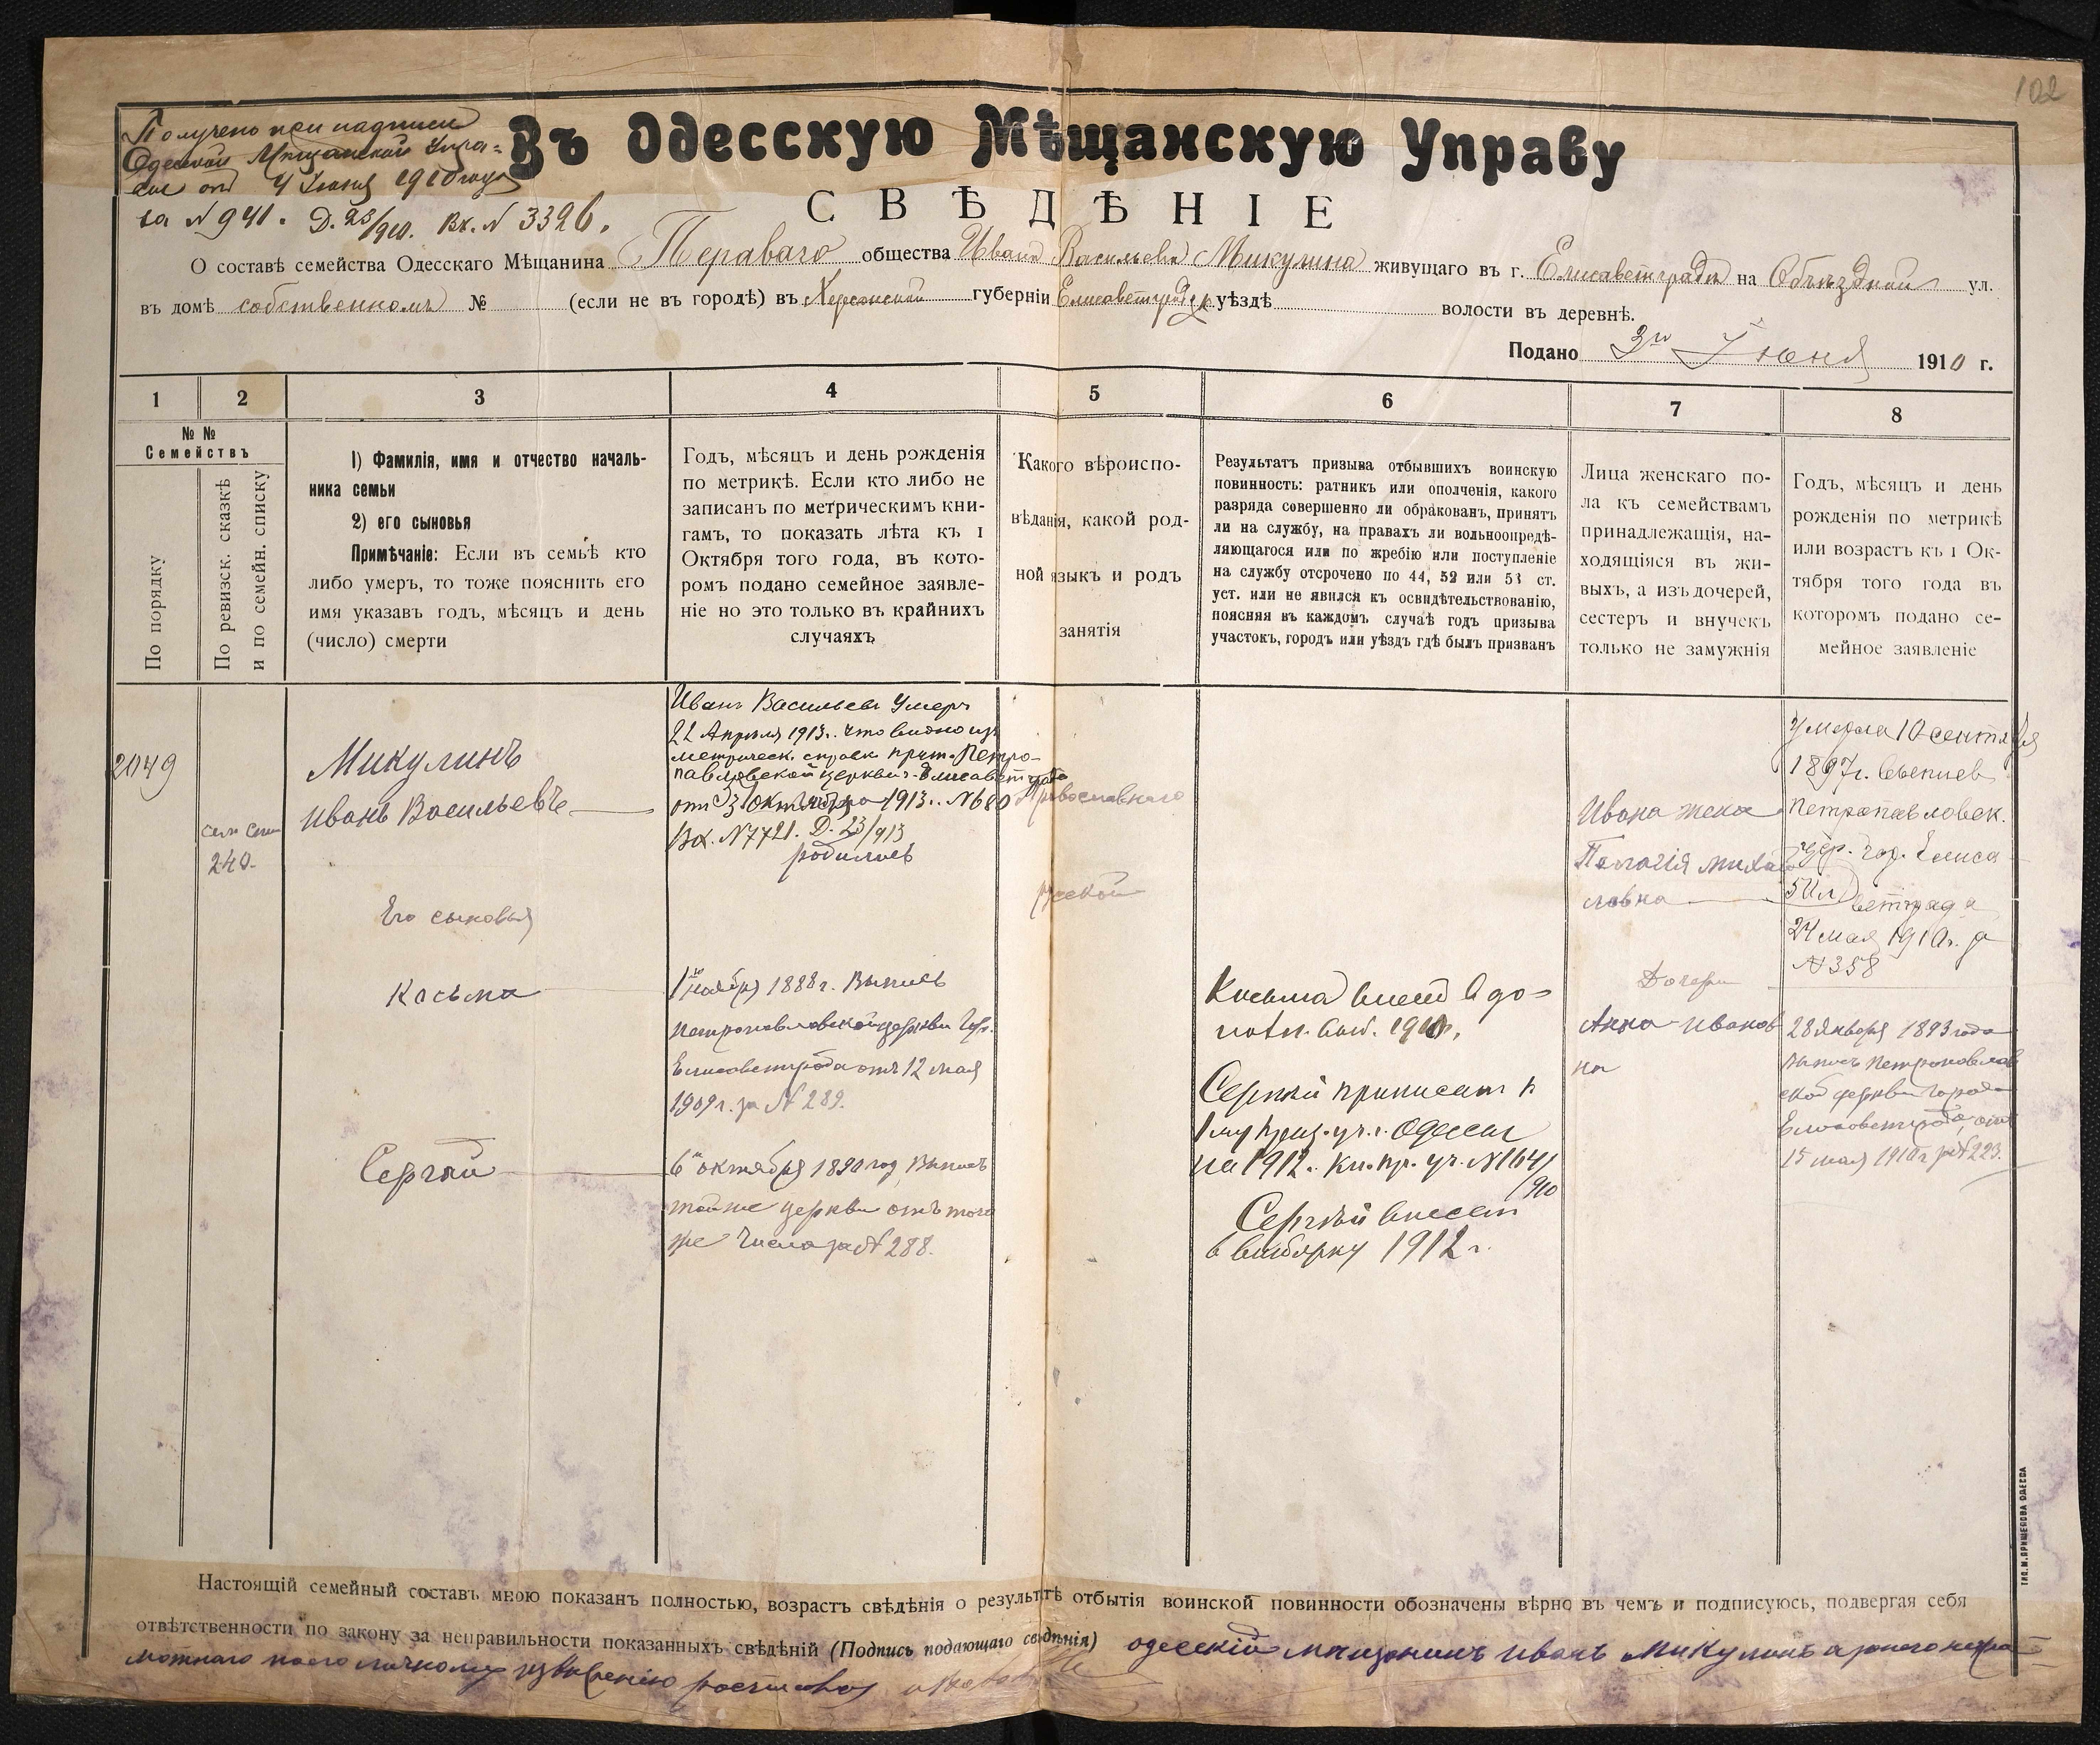 102
Получено при надписи
Одесской Мѣщанской Упра=
вы от 4 Іюня 1910 года
за № 941. Д. 23/910. Вх. № 3326.
Въ Одесскую Мѣщанскую Управу
СВѢДѢНІЕ
О составѣ семейства Одесскаго Мѣщанина Перваго общества Ивана Васильева Микулина живущаго въ г. Елисаветградѣ на Объѣздной ул.
въ домѣ собственномъ № (если не въ городѣ) въ Херсонской губерніи Елисаветградск. уѣздѣ волости въ деревнѣ.
Подано 3го Іюня 1910 г.
1 2 3 4 5 6 7 8
№ №
Семействъ
По порядку
По ревизск. сказкѣ
и по семейн. списку
1) Фамилія, имя и отчество началь-
ника семьи
2) его сыновья
Примѣчаніе: Если въ семьѣ кто
либо умеръ, то тоже пояснить его
имя указавъ годъ, мѣсяцъ и день
(число) смерти
Годъ, мѣсяцъ и день рожденія
по метрикѣ. Если кто либо не
записанъ по метрическимъ кни-
гамъ, то показать лѣта къ 1
Октября того года, въ кото-
ромъ подано семейное заявле-
ніе но это только въ крайнихъ
случаяхъ
Какого вѣроиспо-
вѣданія, какой род-
ной языкъ и родъ
занятія
Результатъ призыва отбывшихъ воинскую
повинность: ратникъ или ополченія, какого
разряда совершенно ли обракованъ, принятъ
ли на службу, на правахъ ли вольноопредѣ-
ляющагося или по жребію или поступленіе
на службу отсрочено по 44, 52 или 53 ст.
уст. или не явился къ освидѣтельствованію,
поясняя въ каждомъ случаѣ годъ призыва
участокъ, городъ или уѣздъ гдѣ былъ призванъ
Лица женскаго по-
ла къ семействамъ
принадлежащія, на-
ходящіяся въ жи-
выхъ, а изъ дочерей,
сестеръ и внучекъ
только не замужнія
Годъ, мѣсяцъ и день
рожденія по метрикѣ
или возрастъ къ 1 Ок-
тября того года въ
которомъ подано се-
мейное заявленіе
2049
240.
Микулинъ
Иванъ Васильевъ
Его сыновья
Косьма
Сергѣй
Иванъ Васильевъ умеръ
22 Апрѣля 1913 г. что видно из
метрическ. справк. прич. Петро-
павловской церкви г. Елисаветграда
от 31 Октября 1913 г. № 680
Вх. № 7721. Д. 23/913
родился
1го ноября 1888 г. Выпись
петропавловской церкви Гор.
Елисаветграда отъ 12 мая
1909 г. за № 289.
6го октября 1890 год. Выпись
той же церкви отъ того
же числа за № 288.
Православнаго
русской
Косьма внесен в до=
полн. выб. 1910 г.
Сергѣй приписан к
1 му приз. уч. г. Одессы
на 1912 г. Кн. пр. уч. № 1641/910
Сергѣй внесен
в выборку 1912 г.
Ивана жена
Пелагія Михай
ловна
Дочери
Анна Иванов
на
Умерла 10 сентября
1897 г.
Петропавловск.
цер. гор. Елиса
ветграда
24 мая 1910 г. за
№ 358
28 января 1893 года
выпись петропавлов
ской церкви города
Елисаветграда, отъ
15 мая 1910 г за № 223.
Настоящій семейный составъ мною показанъ полностью, возрастъ свѣдѣнія о результтѣ отбытія воинской повинности обозначены вѣрно въ чемъ и подписуюсь, подвергая себя
отвѣтственности по закону за неправильности показанныхъ свѣдѣній (Подпись подающаго свѣдѣнія) одесскій мѣщанинъ Иванъ Микулинъ а за него негра-
мотнаго по его личному
ТИП. М. ПРИЩЕПОВА ОДЕССА